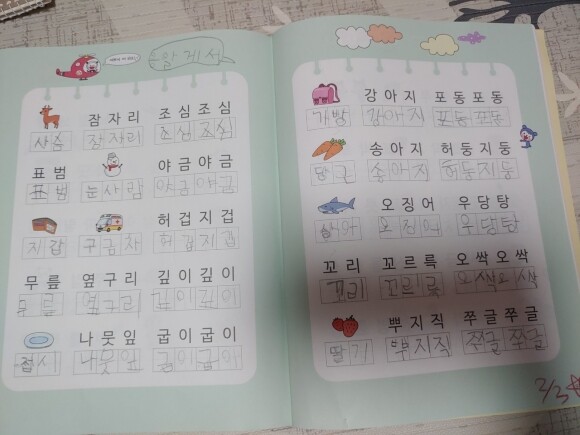 암게서
잠자리 조심조심
사슴 잠자리 조심 조심
표범 야금야금
표범 눈사람 야금 야금
허겁지겁
지갑 구급차 허겁지겁
무릎 옆구리 깊이깊이
무릎 옆구리 깊이깊이
나뭇잎 굽이굽이
접시 나뭇잎 굽이 굽이
강아지 포동포동
가방 강아지 포동 포동
송아지 허둥지둥
당근 송아지 허둥지둥
오징어 우당탕
상어 오징어 우당탕
꼬리 꼬르륵 오싹오싹
꼬리 꼬르륵 오싹오싹
뿌지직 쭈글쭈글
딸기 뿌지직 쭈글 쭈글
2/3